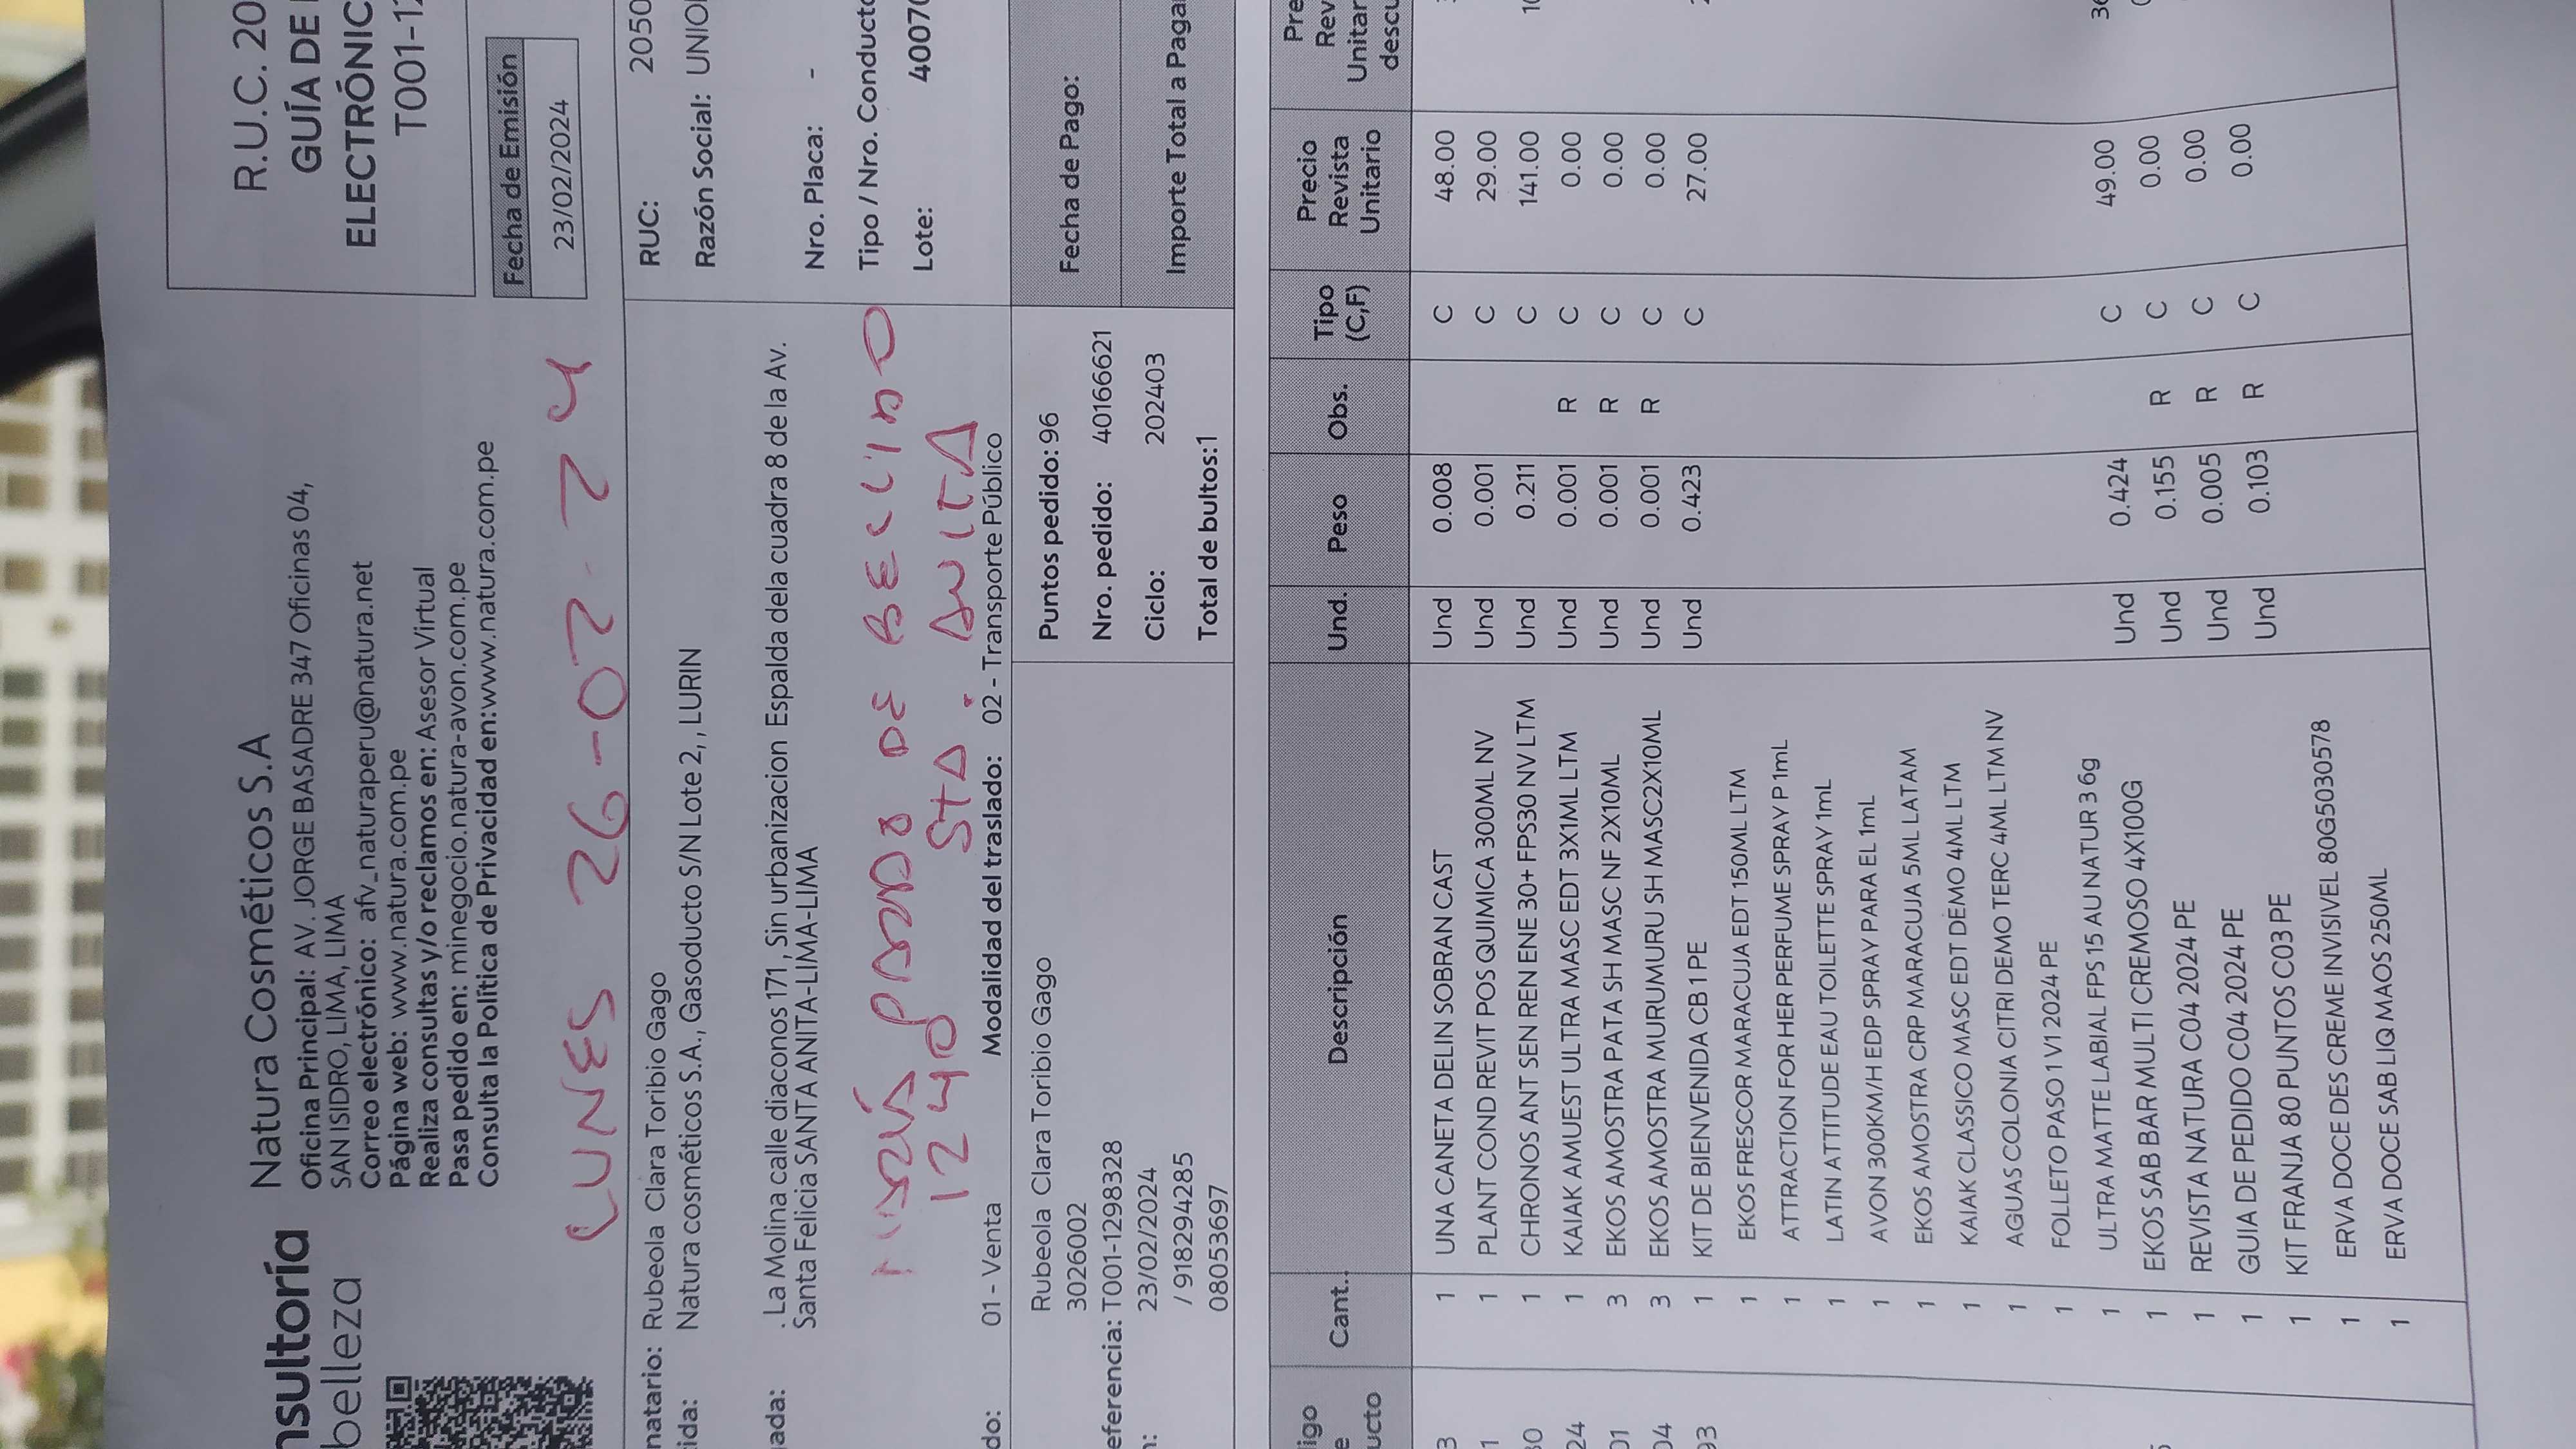 nsultoría
belleza
Natura Cosméticos S.A
Oficina Principal: AV. JORGE BASADRE 347 Oficinas 04,
SAN ISIDRO, LIMA, LIMA
Correo electrónico: afv_naturaperu@natura.net
Página web: www.natura.com.pe
Realiza consultas y/o reclamos en: Asesor Virtual
Pasa pedido en: minegocio.natura-avon.com.pe
Consulta la Política de Privacidad en:www.natura.com.pe
R.U.C. 20
GUÍA DE
ELECTRÓNIC
T001-12
Fecha de Emisión
23/02/2024
LUNES 26-02-24
natario: Rubeola Clara Toribio Gago
tida: Natura cosméticos S.A., Gasoducto S/N Lote 2, , LURIN
gada: . La Molina calle diaconos 171, Sin urbanizacion Espalda dela cuadra 8 de la Av.
Santa Felicia SANTA ANITA-LIMA-LIMA
DE RECIBO
STA. ANITA
do: 01 - Venta Modalidad del traslado: 02 - Transporte Público
RUC: 2050
Razón Social: UNIO
Nro. Placa: -
Tipo / Nro. Conducto
Lote: 40070
Rubeola Clara Toribio Gago
3026002
eferencia: T001-1298328
23/02/2024
/ 918294285
08053697
Puntos pedido: 96
Nro. pedido: 40166621
Ciclo: 202403
Total de bultos:1
Fecha de Pago:
Importe Total a Paga
igo
ucto Cant. Descripción Und. Peso Obs. Tipo (C,F) Precio Revista Unitario Pre Rev Unitar descu
3 1 UNA CANETA DELIN SOBRAN CAST Und 0.008 C 48.00
1 1 PLANT COND REVIT POS QUIMICA 300ML NV Und 0.001 C 29.00
30 1 CHRONOS ANT SEN REN ENE 30+ FPS30 NV LTM Und 0.211 C 141.00 10
24 1 KAIAK AMUEST ULTRA MASC EDT 3X1ML LTM Und 0.001 R C 0.00
01 3 EKOS AMOSTRA PATA SH MASC NF 2X10ML Und 0.001 R C 0.00
04 3 EKOS AMOSTRA MURUMURU SH MASC2X10ML Und 0.001 R C 0.00
93 1 KIT DE BIENVENIDA CB 1 PE Und 0.423 C 27.00
1 EKOS FRESCOR MARACUJA EDT 150ML LTM
1 ATTRACTION FOR HER PERFUME SPRAY P 1mL
1 LATIN ATTITUDE EAU TOILETTE SPRAY 1mL
1 AVON 300KM/H EDP SPRAY PARA EL 1mL
1 EKOS AMOSTRA CRP MARACUJA 5ML LATAM
1 KAIAK CLASSICO MASC EDT DEMO 4ML LTM
1 AGUAS COLONIA CITRI DEMO TERC 4ML LTM NV
1 FOLLETO PASO 1 V1 2024 PE
1 ULTRA MATTE LABIAL FPS 15 AU NATUR 3 6g
1 EKOS SAB BAR MULTI CREMOSO 4X100G Und 0.424 C 49.00 36
1 REVISTA NATURA C04 2024 PE Und 0.155 R C 0.00
1 GUIA DE PEDIDO C04 2024 PE Und 0.005 R C 0.00
1 KIT FRANJA 80 PUNTOS C03 PE Und 0.103 R C 0.00
1 ERVA DOCE DES CREME INVISIVEL 80G5030578
1 ERVA DOCE SAB LIQ MAOS 250ML